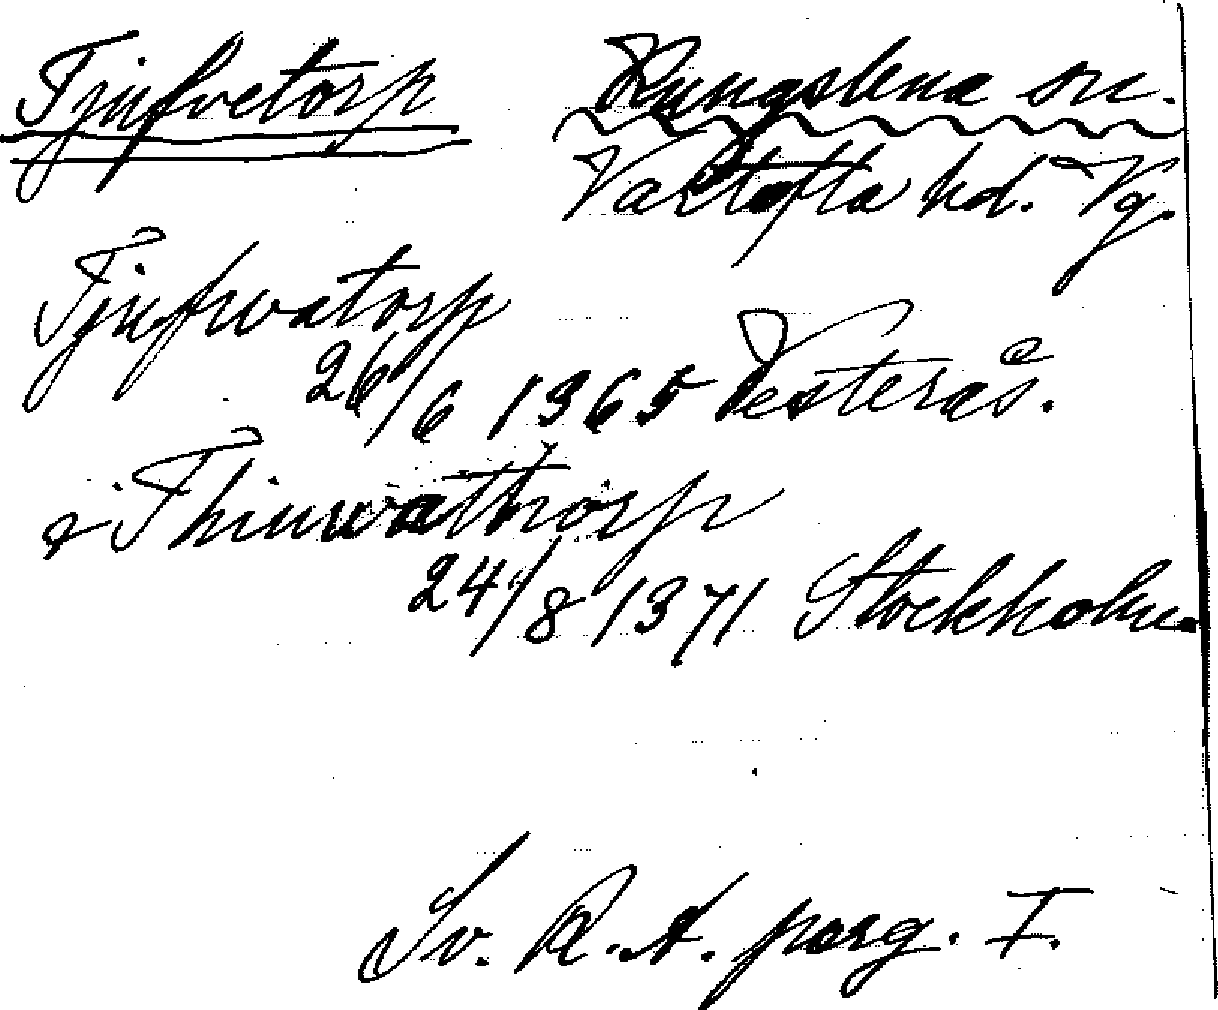 Tjufvetorp Kungslena sn.
Vartofta hd. Vg.
Tjufwatorp
26/6 1365 Vesterås.
i Thiuwathorp
24/8 1371 Stockholm
Sv. R. A. parg. I.